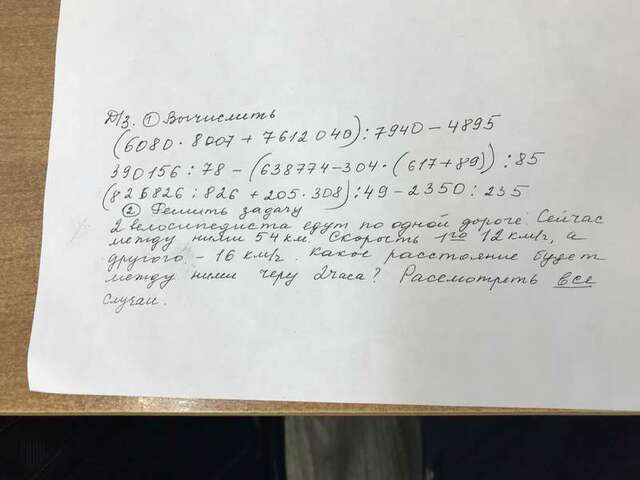 Д/з. ① Вычислить
(6080 · 8007 + 7612040) : 7940 - 4895
390156 : 78 - (638774 - 304 · (617 + 89)) : 85
(826826 : 826 + 205 · 308) : 49 - 2350 : 235
② Решить задачу
2 велосипедиста едут по одной дороге. Сейчас
между ними 54 км. Скорость 1го 12 км/ч, а
другого - 16 км/ч. Какое расстояние будет
между ними черу 2часа? Рассмотреть все
случаи.